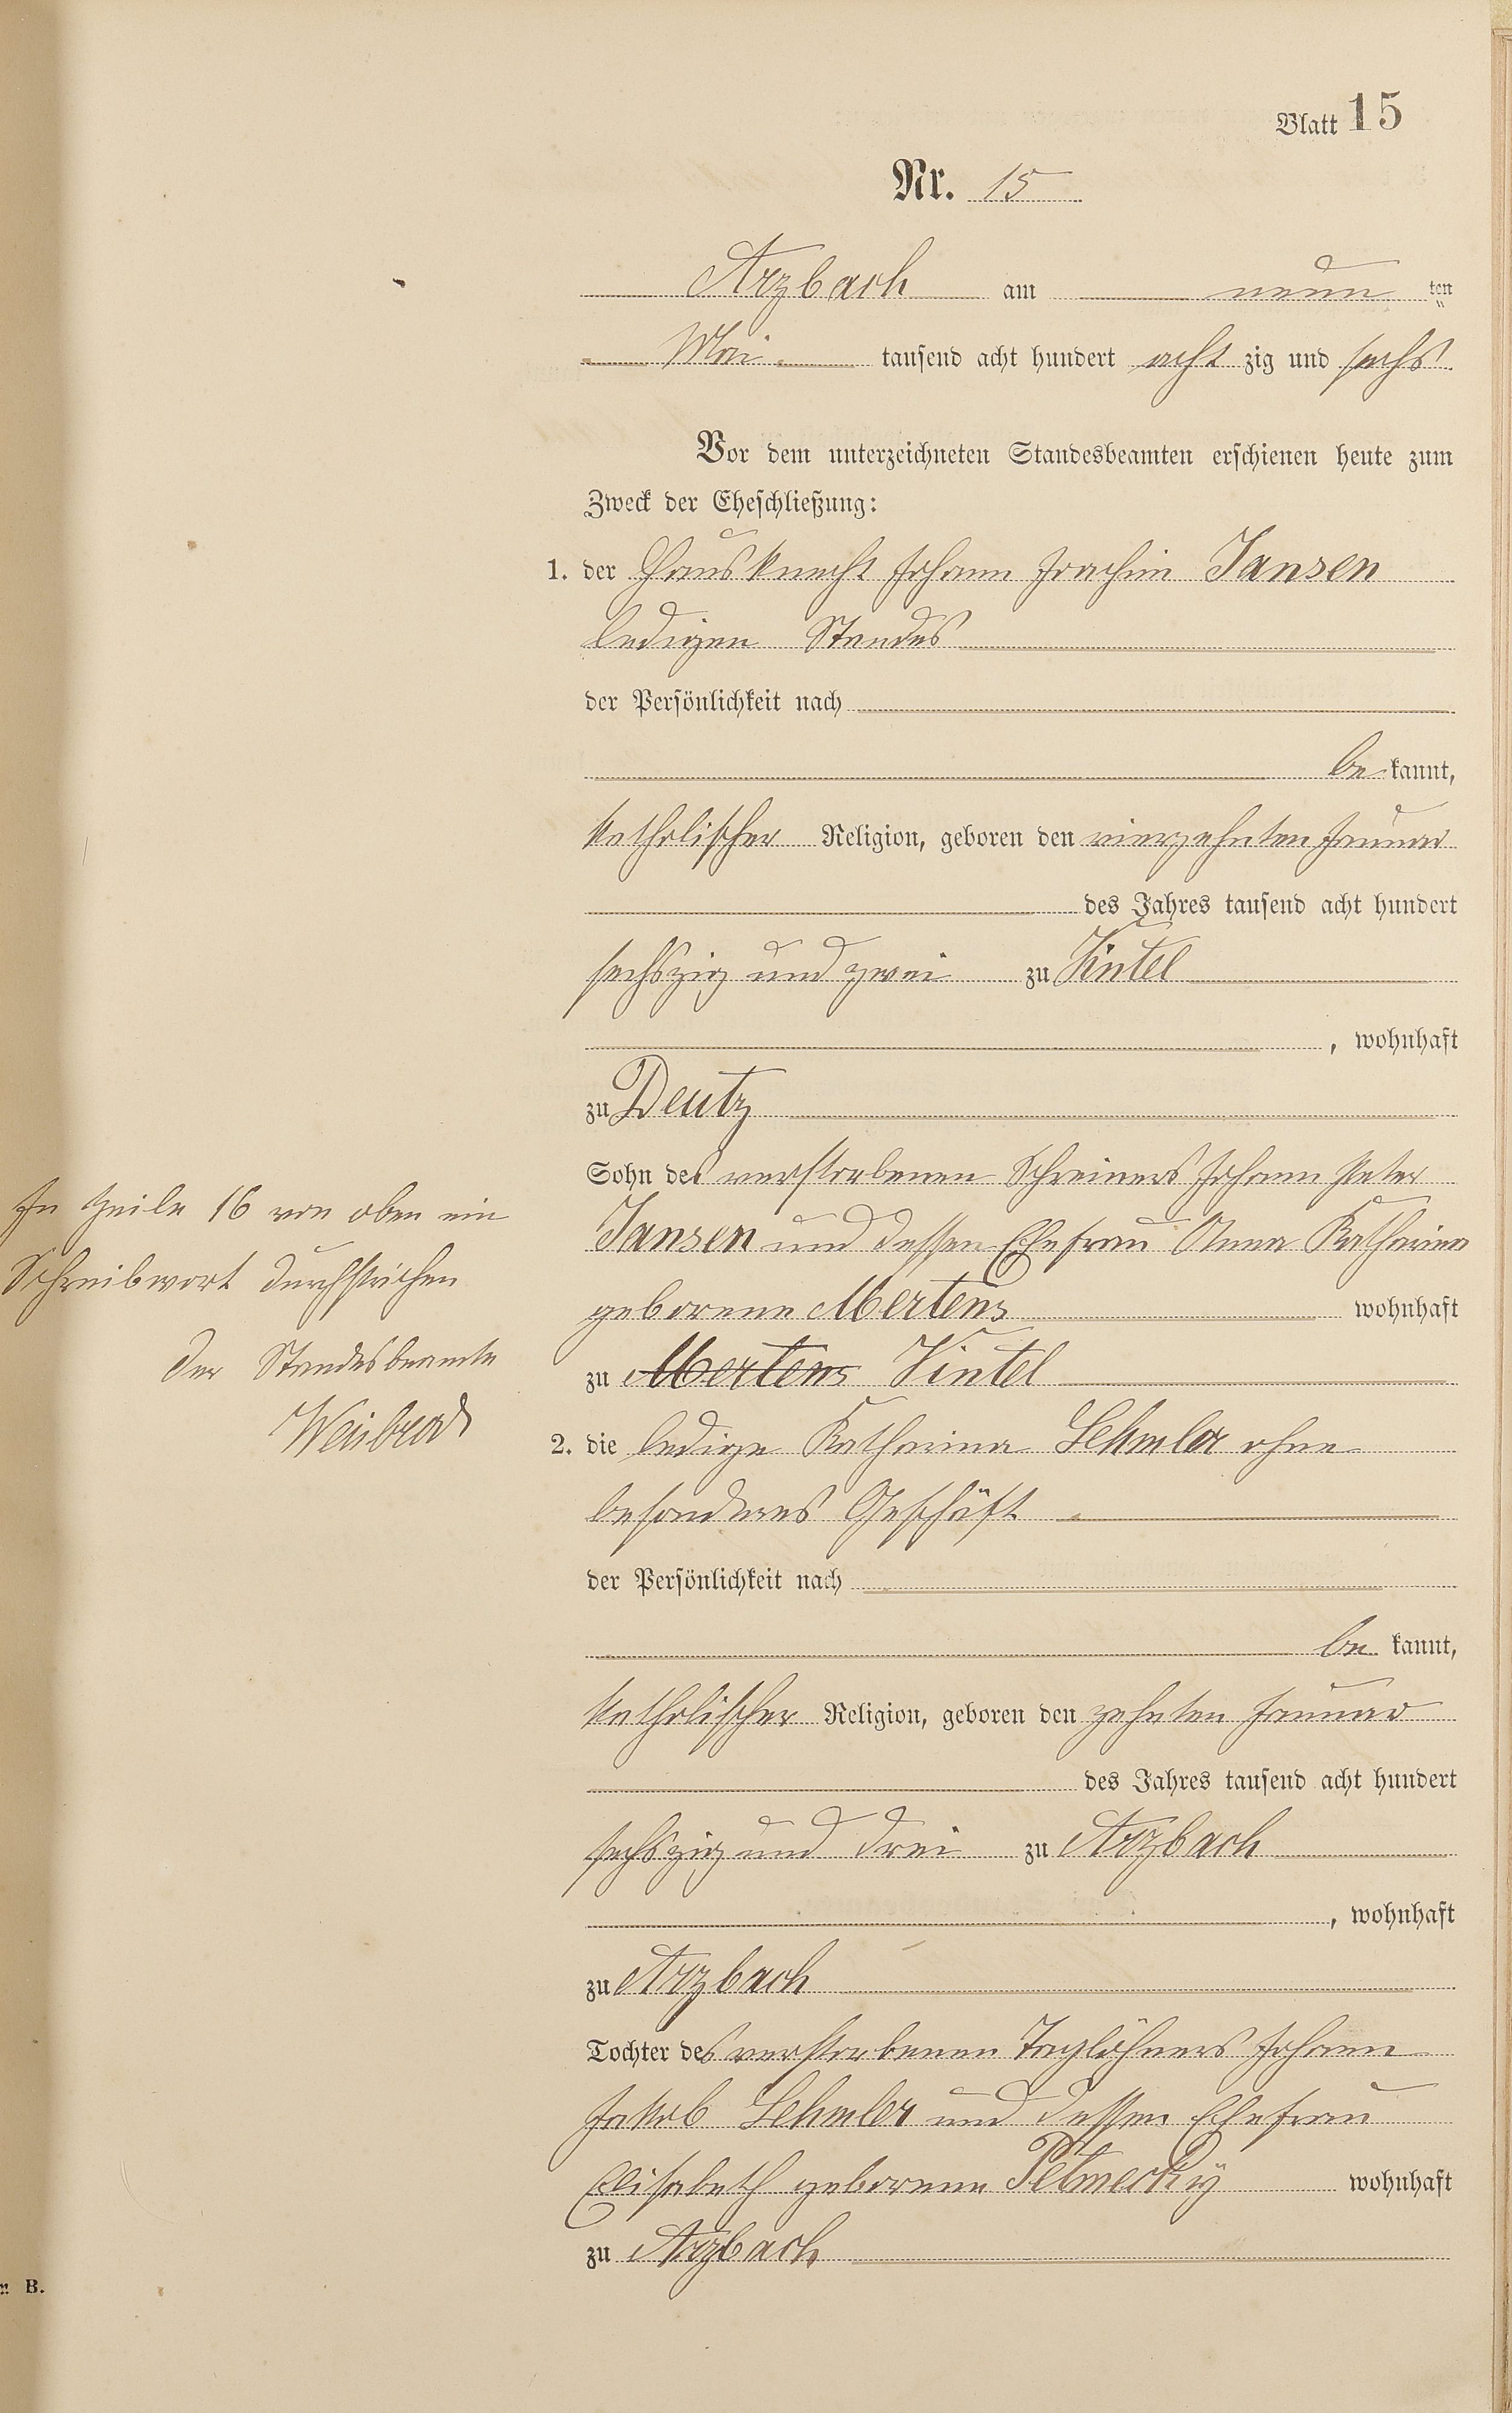 Blatt 15
Nr. 15
Arzbach am neun ten
Mai tausend acht hundert acht zig und sechs
Vor dem unterzeichneten Standesbeamten erschienen heute zum
Zweck der Eheschließung:
1. der Hausknecht Johann Joachim Jansen
ledigen Standes
der Persönlichkeit nach
be kannt,
katholischer Religion, geboren den vierzehnten Januar
des Jahres tausend acht hundert
sechszig und zwei zu Kintel
, wohnhaft
zu Deutz
Sohn des verstorbenen Schreiners Johann Peter
Jansen und dessen Ehefrau Anna Katharina
geborene Mertens wohnhaft
zu Mertens Vintel
2. die ledige Katharina Lehmler ohne
besonderes Geschäft
der Persönlichkeit nach
be kannt,
katholischer Religion, geboren den zehnten Januar
des Jahres tausend acht hundert
sechszig und drei zu Arzbach
, wohnhaft
zu Arzbach
Tochter des verstorbenen Taglöhners Johann
Jakob Lehmler und dessen Ehefrau
Elisabeth geborene Petmecky wohnhaft
zu Arzbach
In Zeile 16 von oben ein
Schreibwort durchstrichen
Der Standesbeamte
Weisbrod
B.